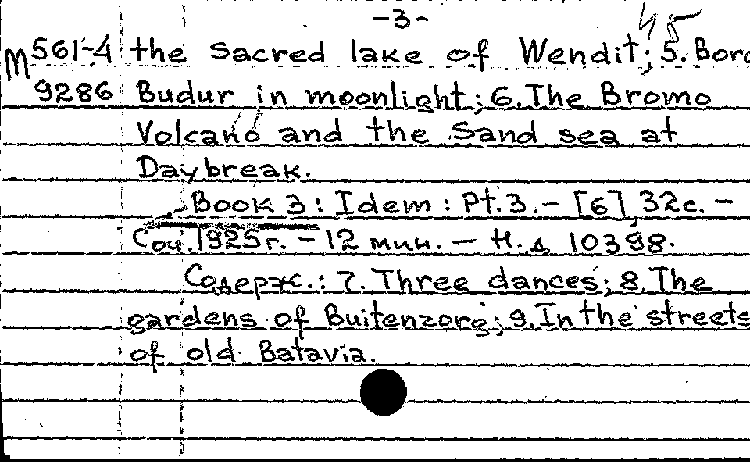 -3- 45
М 561-4 the Sacred lake of Wendit; 5. Boro
9286 Budur in moonlight; 6. The Bromo
Volcano and the Sand sea at
Daybreak.
Book 3: Idem: Pt. 3. - [6], 32с. -
Соч. 1925г. - 12 мин. - Н.д. 10398.
Содерж.: 7. Three dances; 8. The
gardens of Buitenzorg; 9. In the streets
of old Batavia.